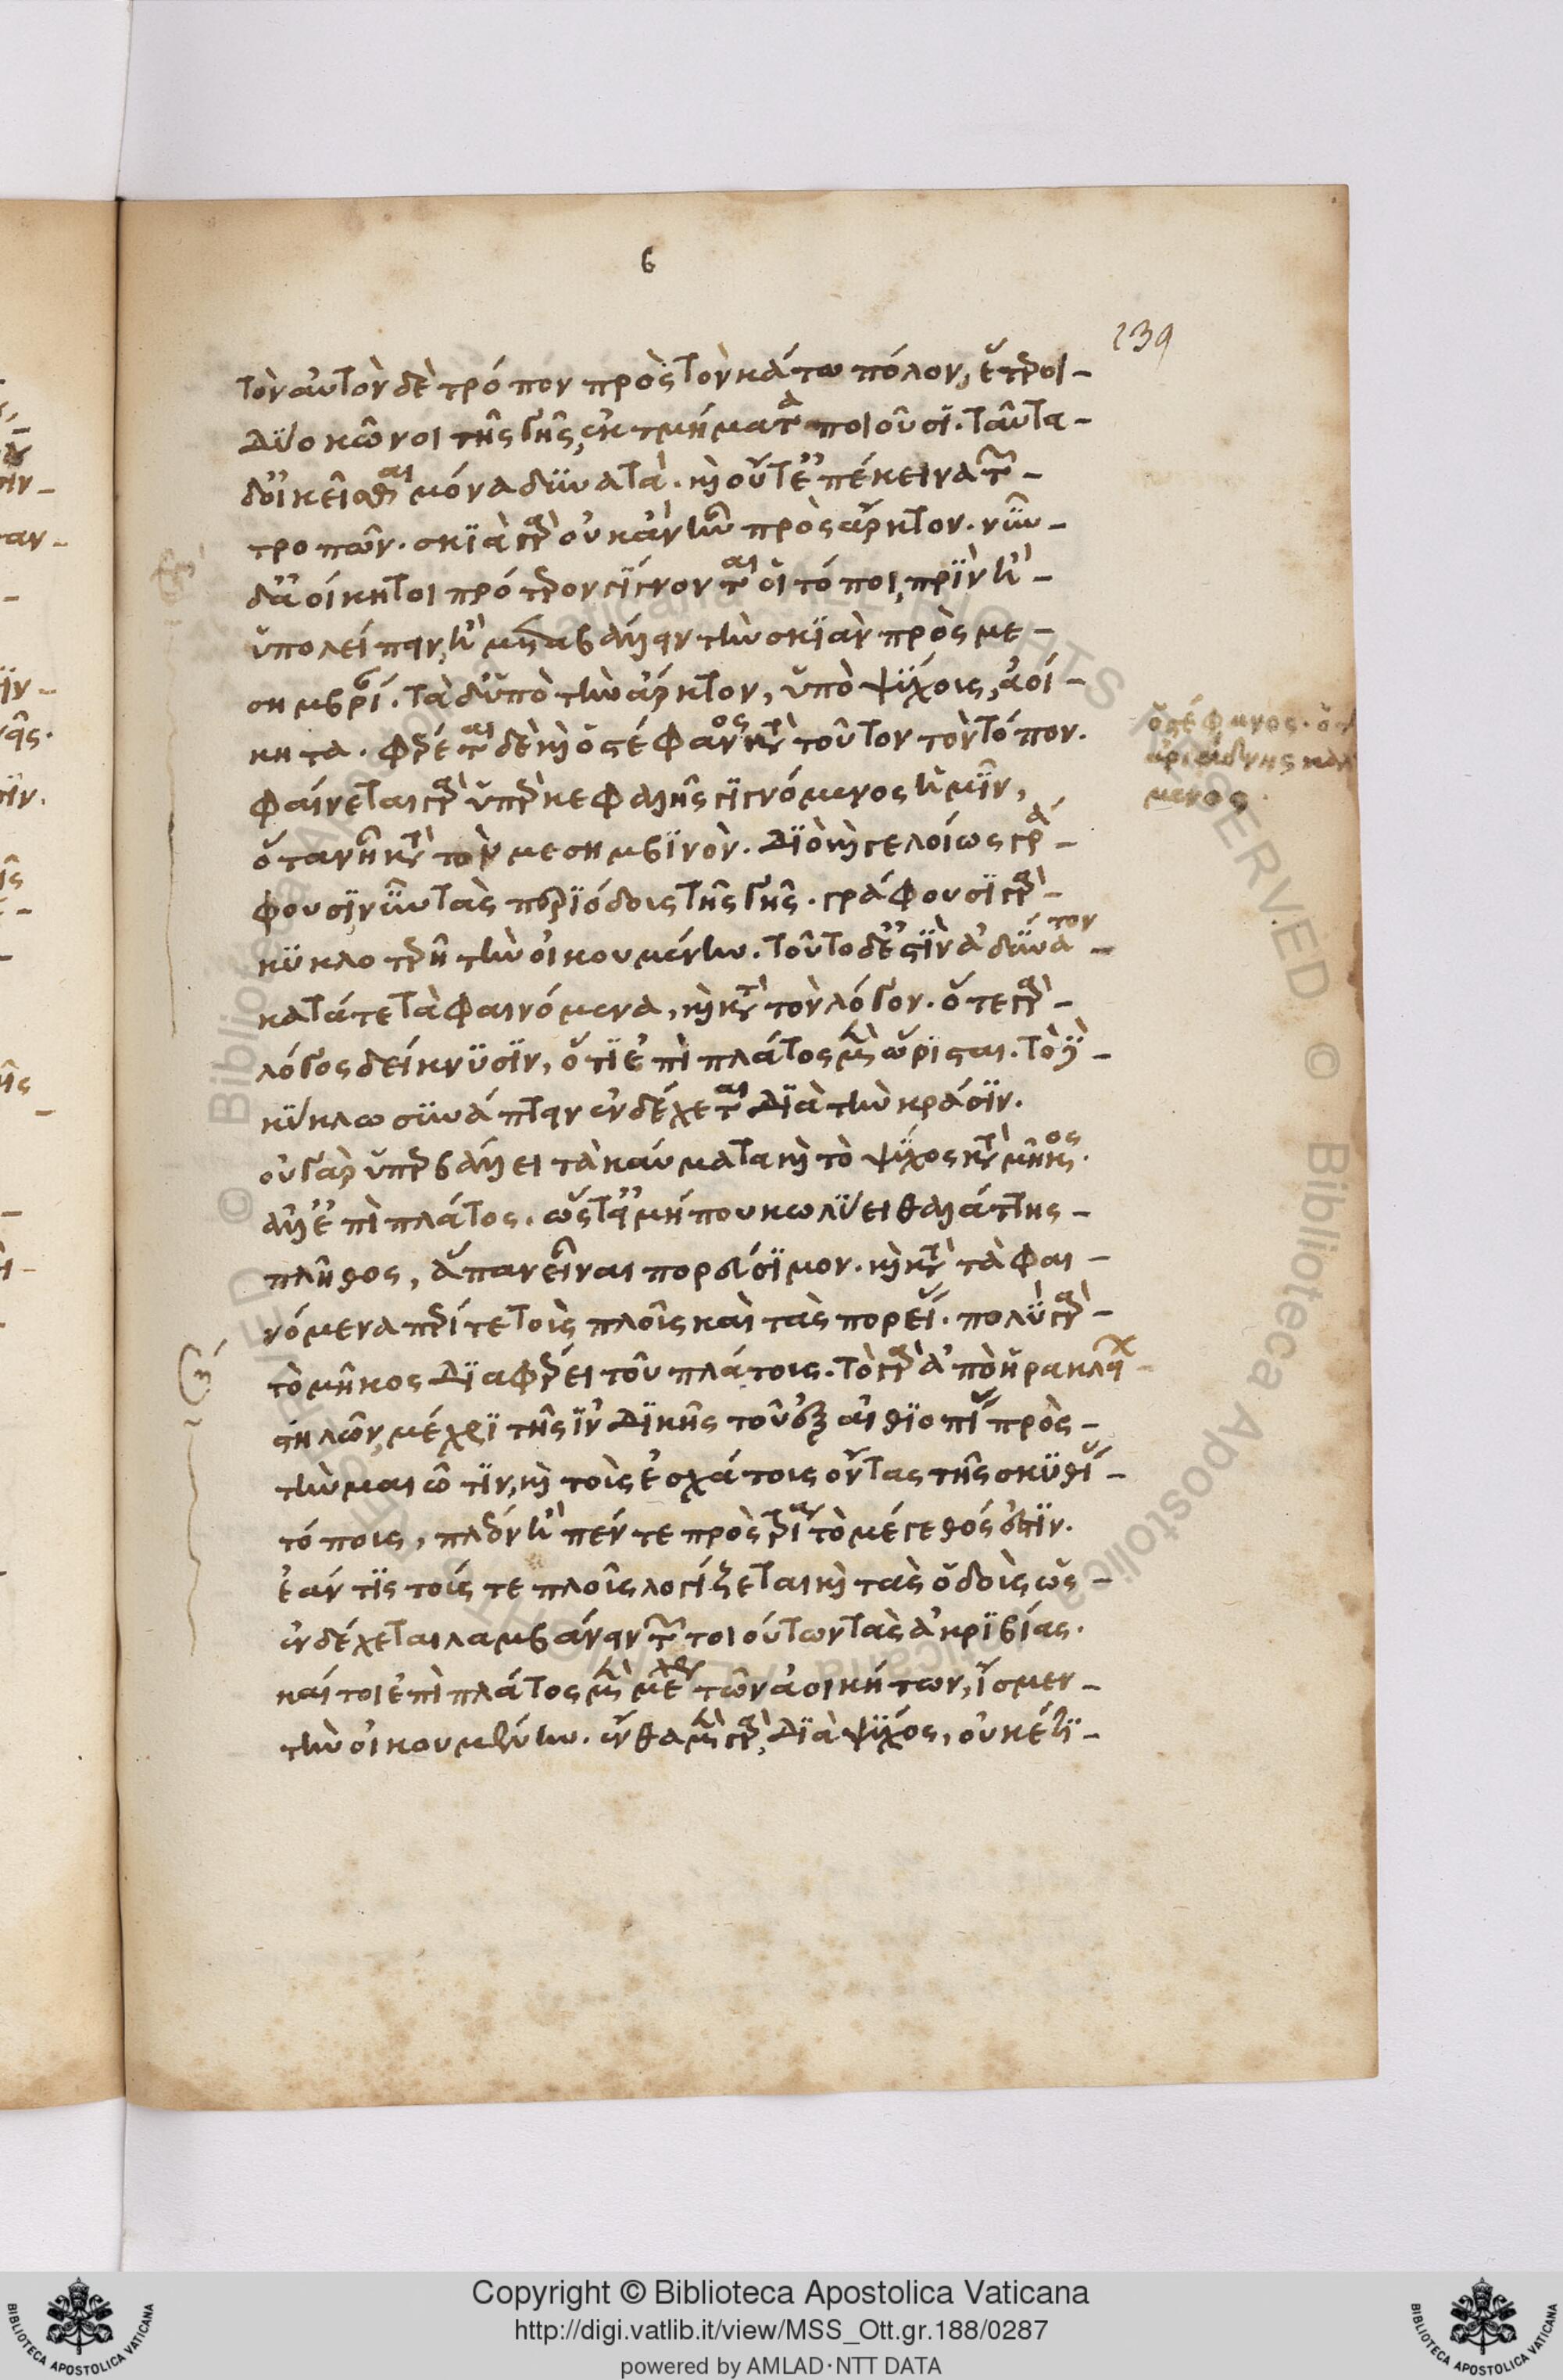 6
239
τὸν αὐτὸν δὲ τρόπον πρὸς τὸν κάτω πόλον, ἕτεροι-
δύο κῶνοι τῆς γῆς, ἐκτμήματα ποιοῦσϊ. ταῦτα-
δ' οἰκεῖσθαι μόνα δυνατὰ. καὶ οὔτ' ἐπέκεινα τῶν-
τροπῶν. σκϊὰ γὰρ οὐκ ἂν ἦν πρὸς ἄρκτον. νῦν-
δ' ἀοίκητοι πρότερον γίγνονται οἱ τόποι, πρὶν ἢ-
ὑπολείπειν, ἢ μεταβάλλειν τὴν σκϊὰν πρὸς με-
σημβρίαν. τὰ δ' ὑπὸ τὴν ἄρκτον, ὑπὸ ψύχους, ἀοί-
κητα. φέρεται δὲ καὶ ὁ στέφανος κατὰ τοῦτον τὸν τόπον.
φαίνεται γὰρ ὑπὲρ κεφαλῆς γιγνόμενος ἡμῖν,
ὅταν ἦ κατὰ τὸν μεσημβϊνὸν. διὸ καὶ γελοίως γρά-
φουσϊ, νῦν τὰς περϊόδους τῆς γῆς. γράφουσϊ γὰρ-
κϋκλοτερῆ τὴν οἰκουμένην. τοῦτο δ' ἐστὶν ἀδύνατον-
κατά τε τὰ φαινόμενα, καὶ κατὰ τὸν λόγον. ὅ τε γὰρ-
λόγος δείκνϋσϊν, ὅτϊ ἐπὶ πλάτος μὲν ὥρισται. τὸ δὲ-
κύκλω συνάπτειν ἐνδέχεται δϊὰ τὴν κρᾶσϊν.
οὐ γὰρ ὑπερβάλλει τὰ καύματα καὶ τὸ ψῦχος κατὰ μῆκος.
ἀλλ' ἐπὶ πλάτος. ὥστ' εἰ μή που κωλύει θαλάττης-
πλῆθος, ἅπαν εἶναι πορεύσϊμον. καὶ κατὰ τὰ φαι-
νόμενα περί τε τοὺς πλοῦς καὶ τὰς πορείας. πολὺ γὰρ-
τὸ μῆκος δϊαφέρει τοῦ πλάτους. τὸ γὰρ ἀπὸ ἡρακλείων-
στηλῶν, μέχρϊ τῆς ἰνδϊκῆς τοῦ ἐξ αἰθϊοπίας πρὸς-
τὴν μαιῶτϊν, καὶ τοὺς ἐσχάτους ὄντας τῆς σκϋθίας-
τόπους, πλέον ἢ πέντε πρὸς τρία τὸ μέγεθός ἐστϊν.
ἐάν τϊς τούς τε πλοῦς λογίζεται καὶ τὰς ὁδοὺς ὡς-
ἐνδέχεται λαμβάνειν τῶν τοιούτων τὰς ἀκρϊβίας.
καίτοι ἐπὶ πλάτος μὲν μέχρι τῶν ἀοικήτων, ἴσμεν-
τὴν οἰκουμένην. ἔνθα μὲν γὰρ, δϊὰ ψῦχος, οὐκέτϊ-
ὁ στέφανος. ὁ
ἀριάδνης καλ
μενος